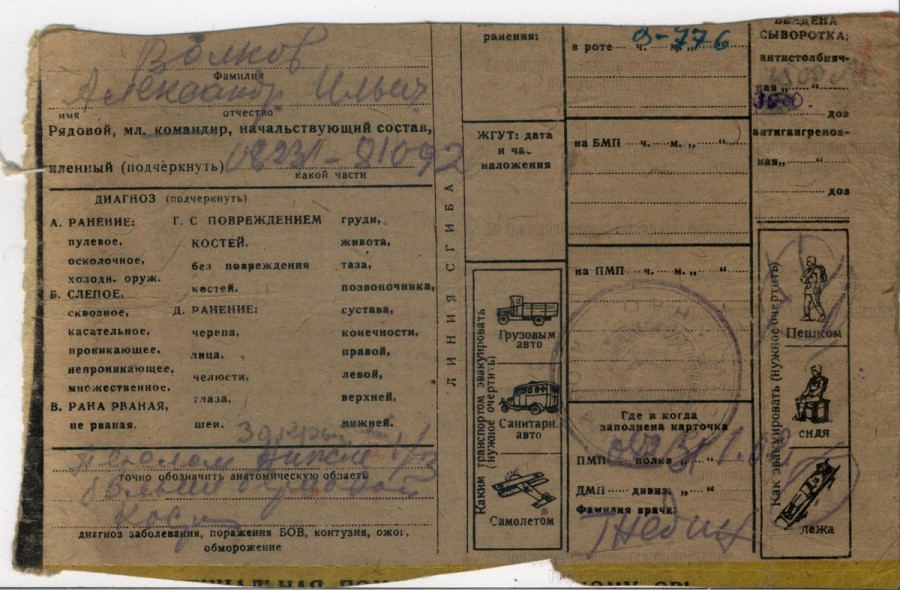 Волков
Фамилия
Александр Ильич
имя отчество
Рядовой, мл. командир, начальствующий состав,
пленный (подчеркнуть)
какой части
ДИАГНОЗ (подчеркнуть)
А. РАНЕНИЕ:
пулевое,
осколочное,
холодн. оруж.
Б. СЛЕПОЕ,
сквозное,
касательное,
проникающее,
непроникающее,
множественное.
В. РАНА РВАНАЯ,
не рваная.
Г. С ПОВРЕЖДЕНИЕМ
КОСТЕЙ,
без повреждения
костей.
Д. РАНЕНИЕ:
черепа,
лица,
челюсти,
глаза,
шеи,
груди,
живота,
таза,
позвоночника,
сустава,
конечности,
правой,
левой,
верхней,
нижней.
Закрытый
перелом нижн 1/3
точно обозначить анатомическую область
больше берцовой
кости
диагноз заболевания, поражения БОВ, контузия, ожог,
обморожение
ЛИНИЯ СГИБА
ранения:
ЖГУТ: дата
и час
наложения
Каким транспортом эвакуировать
(нужное очертить)
Грузовым
авто
Санитарн.
авто
Самолетом
в роте ч. м. „ “
9-776
на БМП ч. м. „ “
на ПМП ч. м. „ “
Где и когда
заполнена карточка
ПМП полка „ “
ДМП дивиз. „ “
Фамилия врача:
ВВЕДЕНА
СЫВОРОТКА:
антистолбняч-
ная „ “
3000.
доз
антигангреноз-
ная „ “
доз
Как эвакуировать (нужное очертить)
Пешком
сидя
лежа